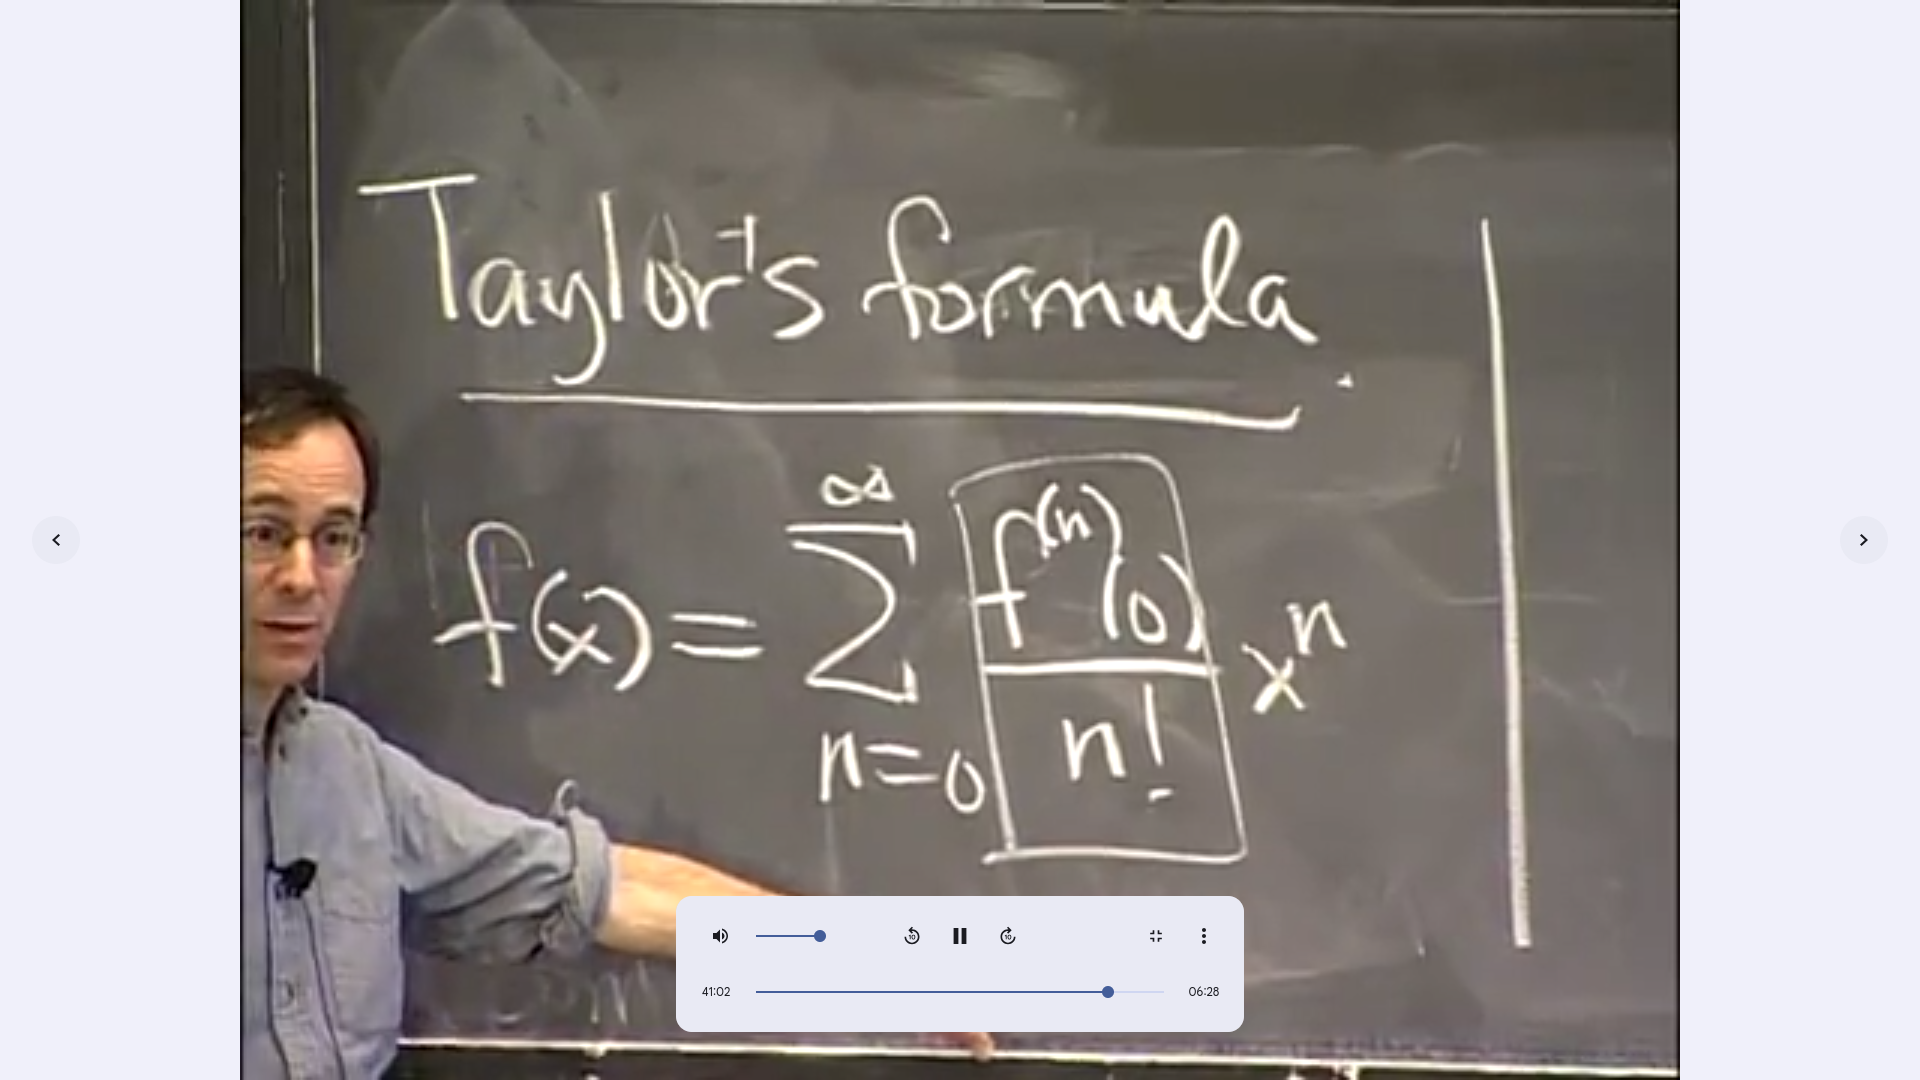 Taylor's formula.
f(x) = ∑_{n=0}^{∞} f^{(n)}(0)/n! x^n
41:02
06:28